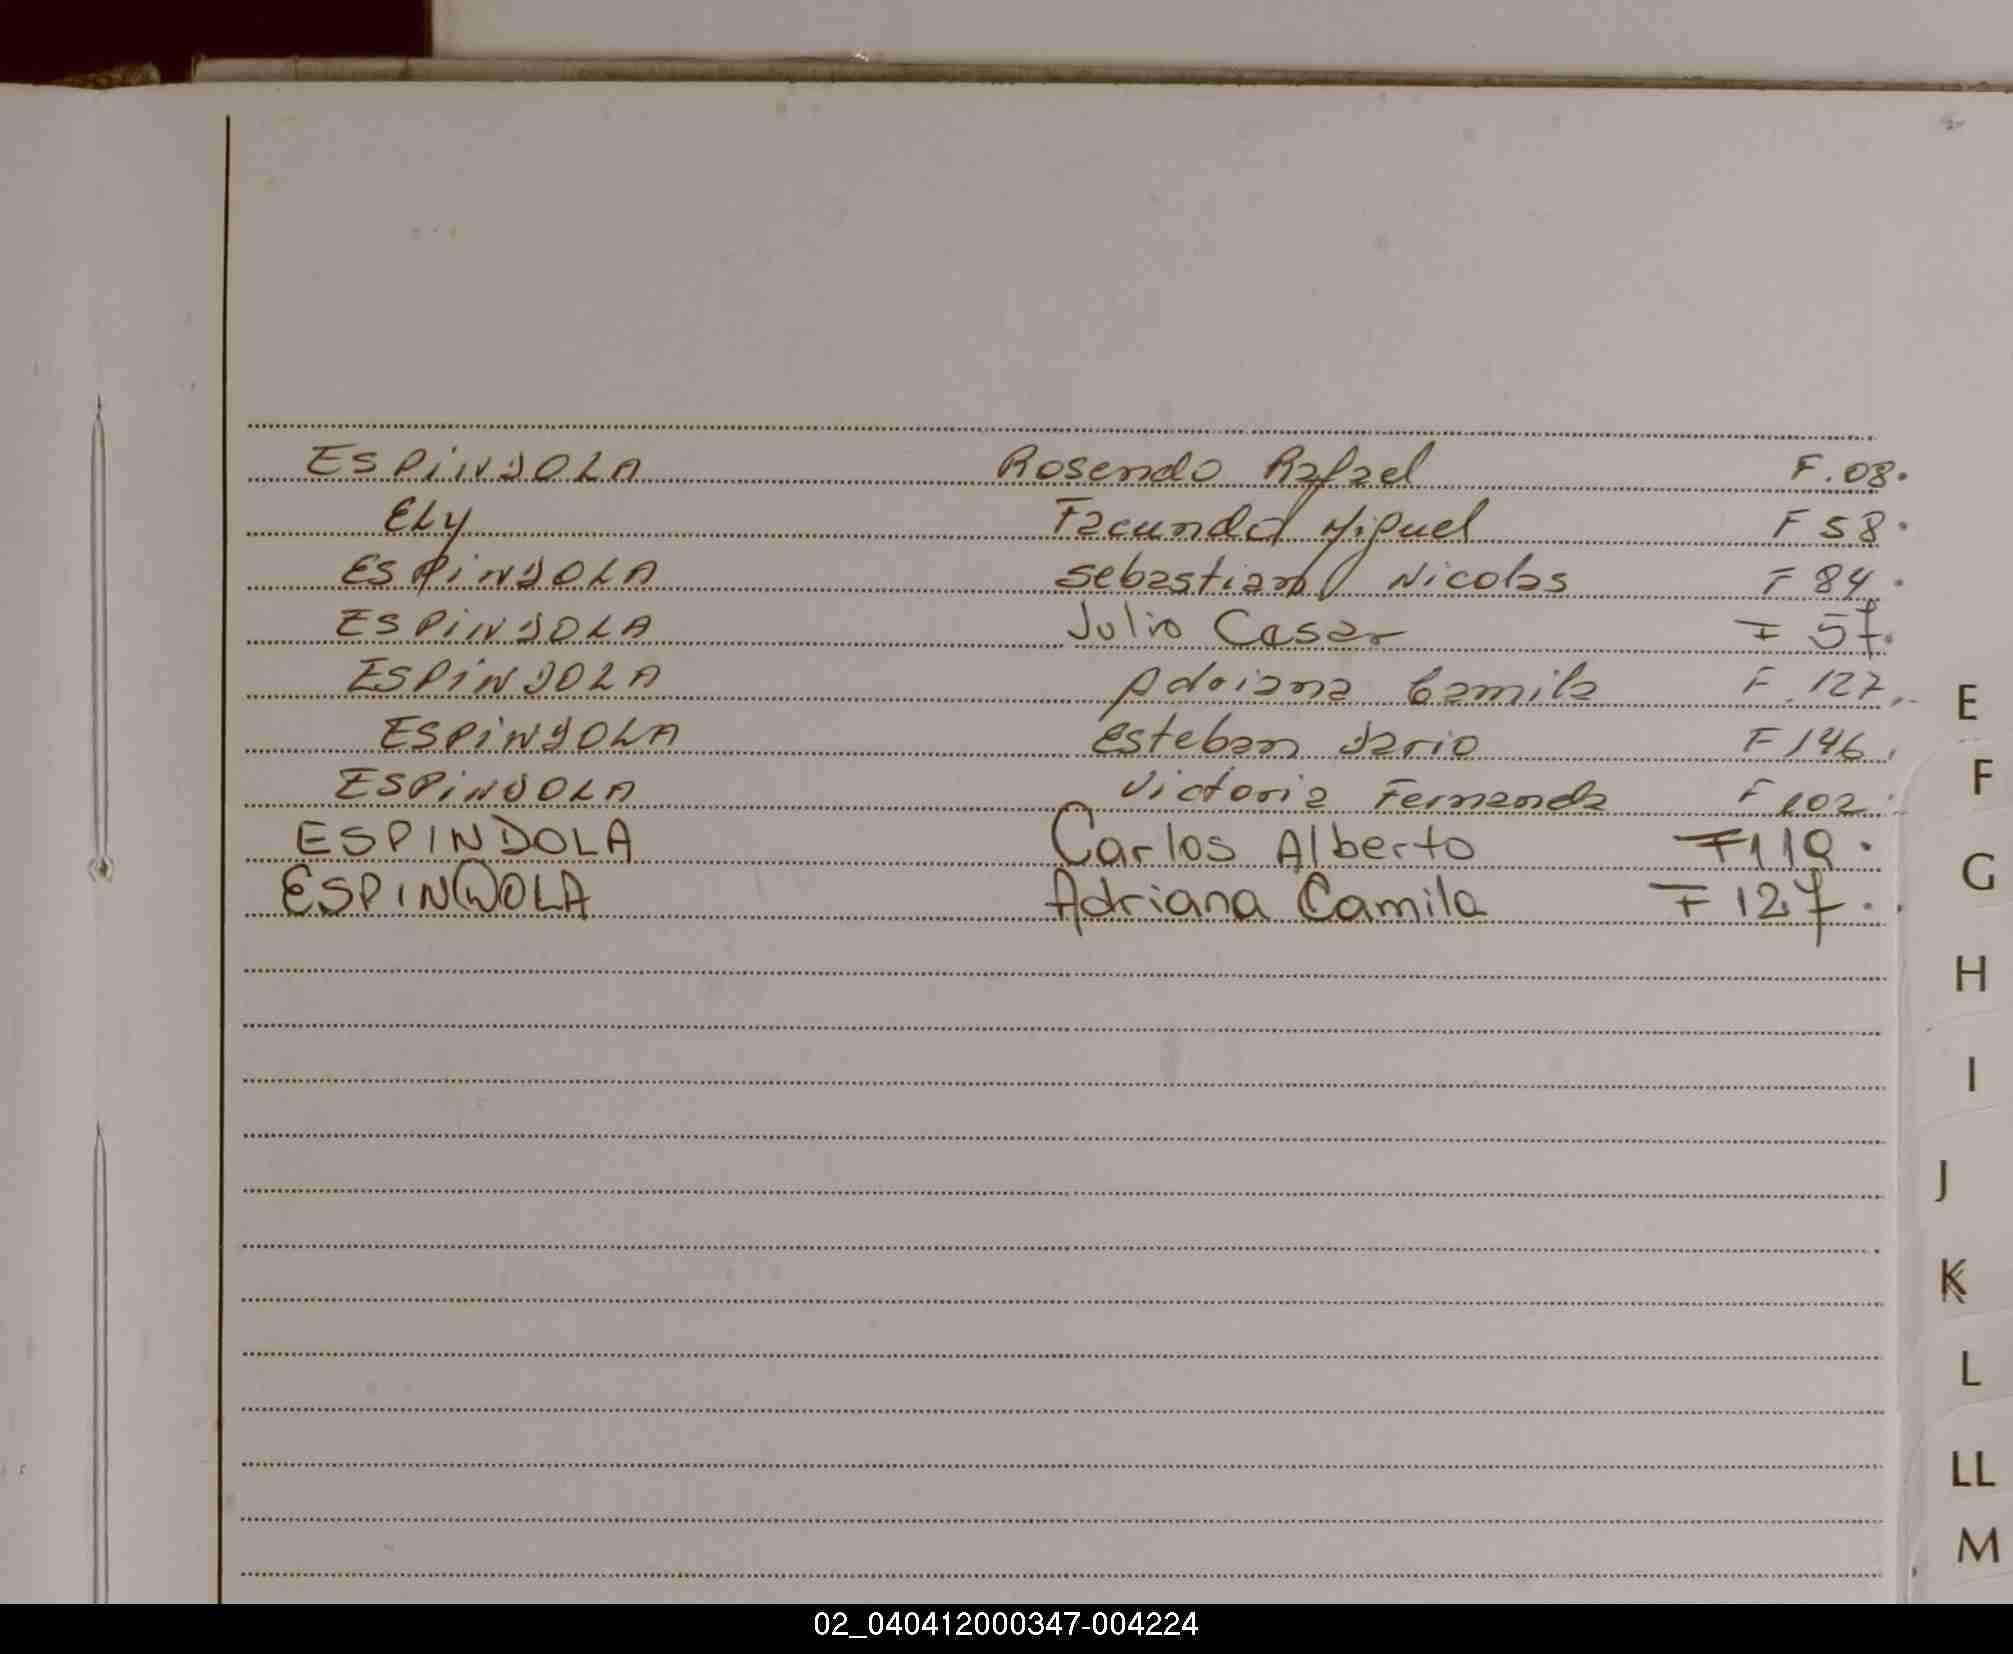 ESPINDOLA Rosendo Rafael F.08.
ELY Facundo Miguel F 58.
ESPINDOLA Sebastian Nicolas F 84.
ESPINDOLA Julio Cesar F 57.
ESPINDOLA Adriana Camila F.127.-
ESPINDOLA Esteban Dario F 146.
ESPINDOLA Victoria Fernanda F 102.
ESPINDOLA Carlos Alberto F110.
ESPINDOLA Adriana Camila F 127..
E
F
G
H
I
J
K
L
LL
M
02_040412000347-004224